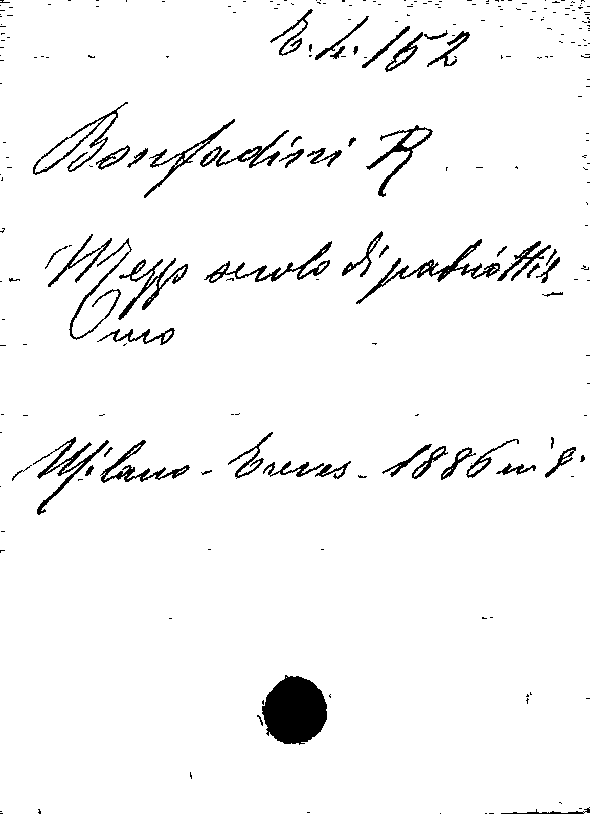 E. 4. 152
Bonfadini R
Mezzo secolo di patriottis
smo
Milano - Treves - 1886 in 8.